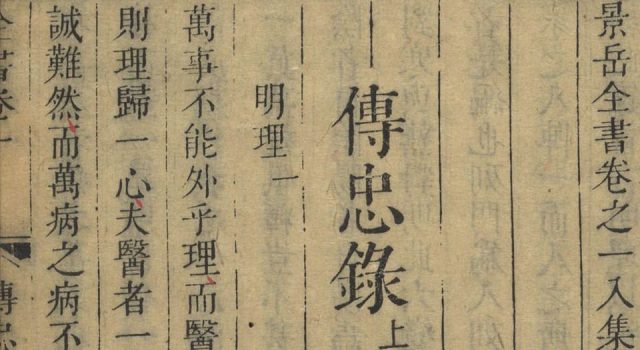 景岳全書卷之一入集
傳忠錄上
明理一
萬事不能外乎理而醫
則理歸一心夫醫者一
誠難然而萬病之病不
全書卷一
傳忠